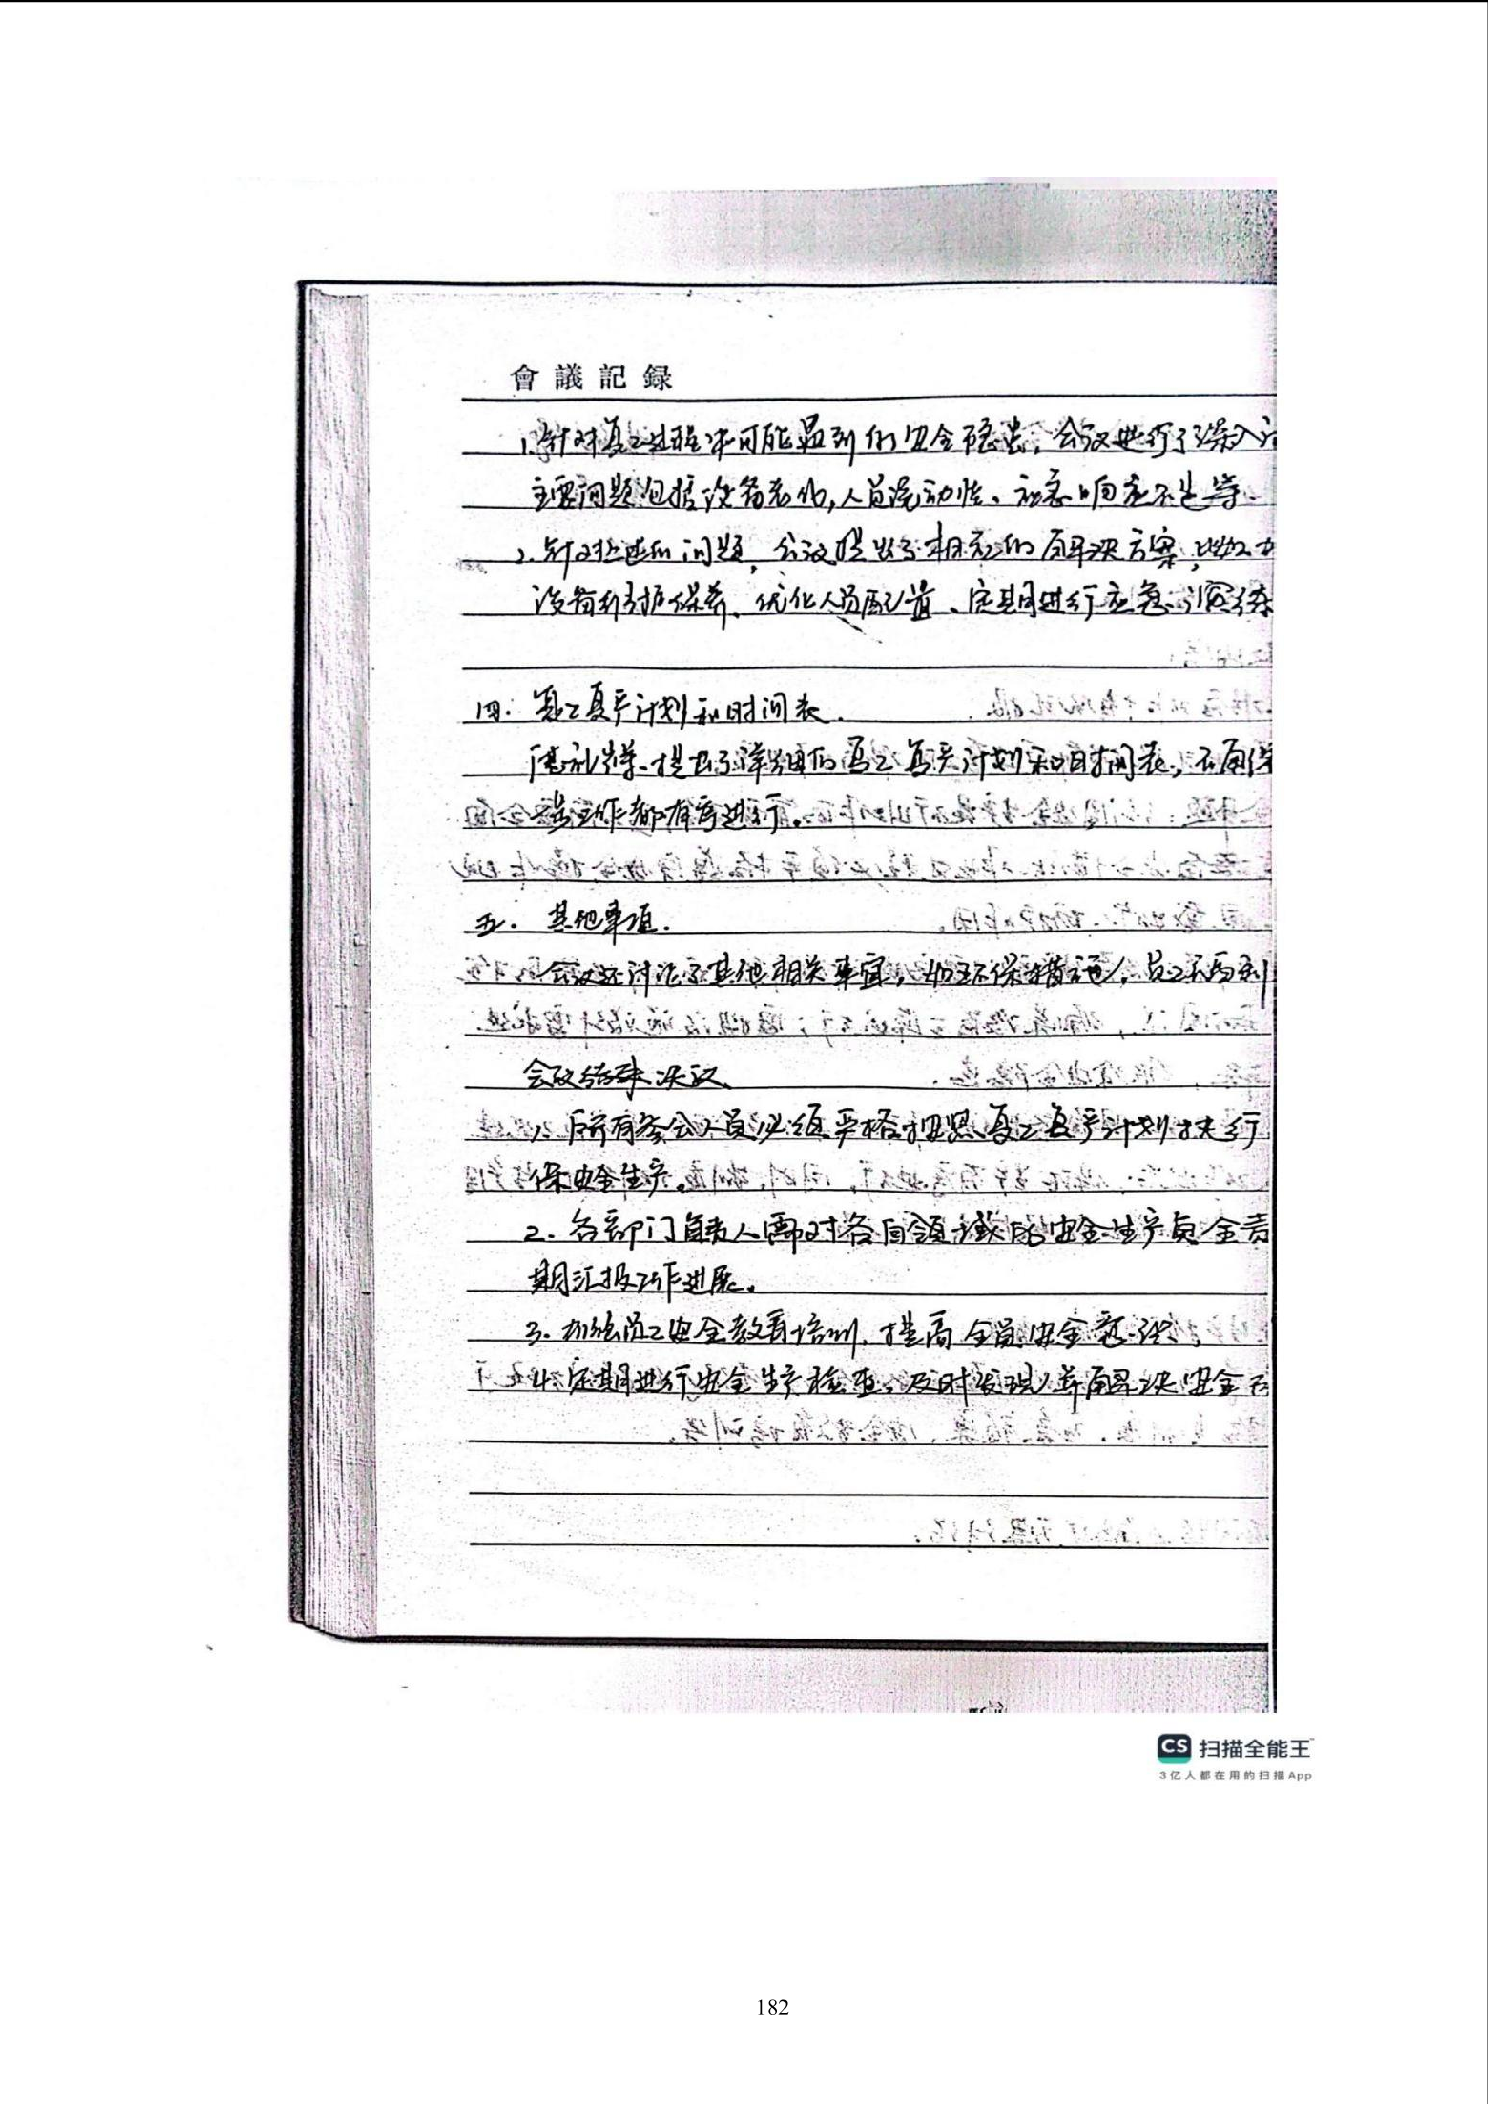 會議記録
1.针对复工过程中可能遇到的安全隐患,会议进行了深入讨
主要问题包括设备老化,人员流动性、应急响应不足等.
2.针对上述的问题,会议提出了相应的解决方案,比如
设备维护保养、优化人员配置、定期进行应急演练
四. 复工复产计划和时间表.
提出了详细的复工复产计划和时间表,
工作都有序进行。
五. 其他事项.
会议还讨论了其他相关事宜,如环保措施,员工
会议结束决议、
1、所有参会人员必须严格按照复工复产计划执行
保安全生产。
2.各部门负责人需对各自领域的安全生产负全责
期汇报工作进展。
3.加强员工安全教育培训,提高全员安全意识.
4.定期进行安全生产检查,及时发现并解决安全
CS 扫描全能王
3亿人都在用的扫描App
182